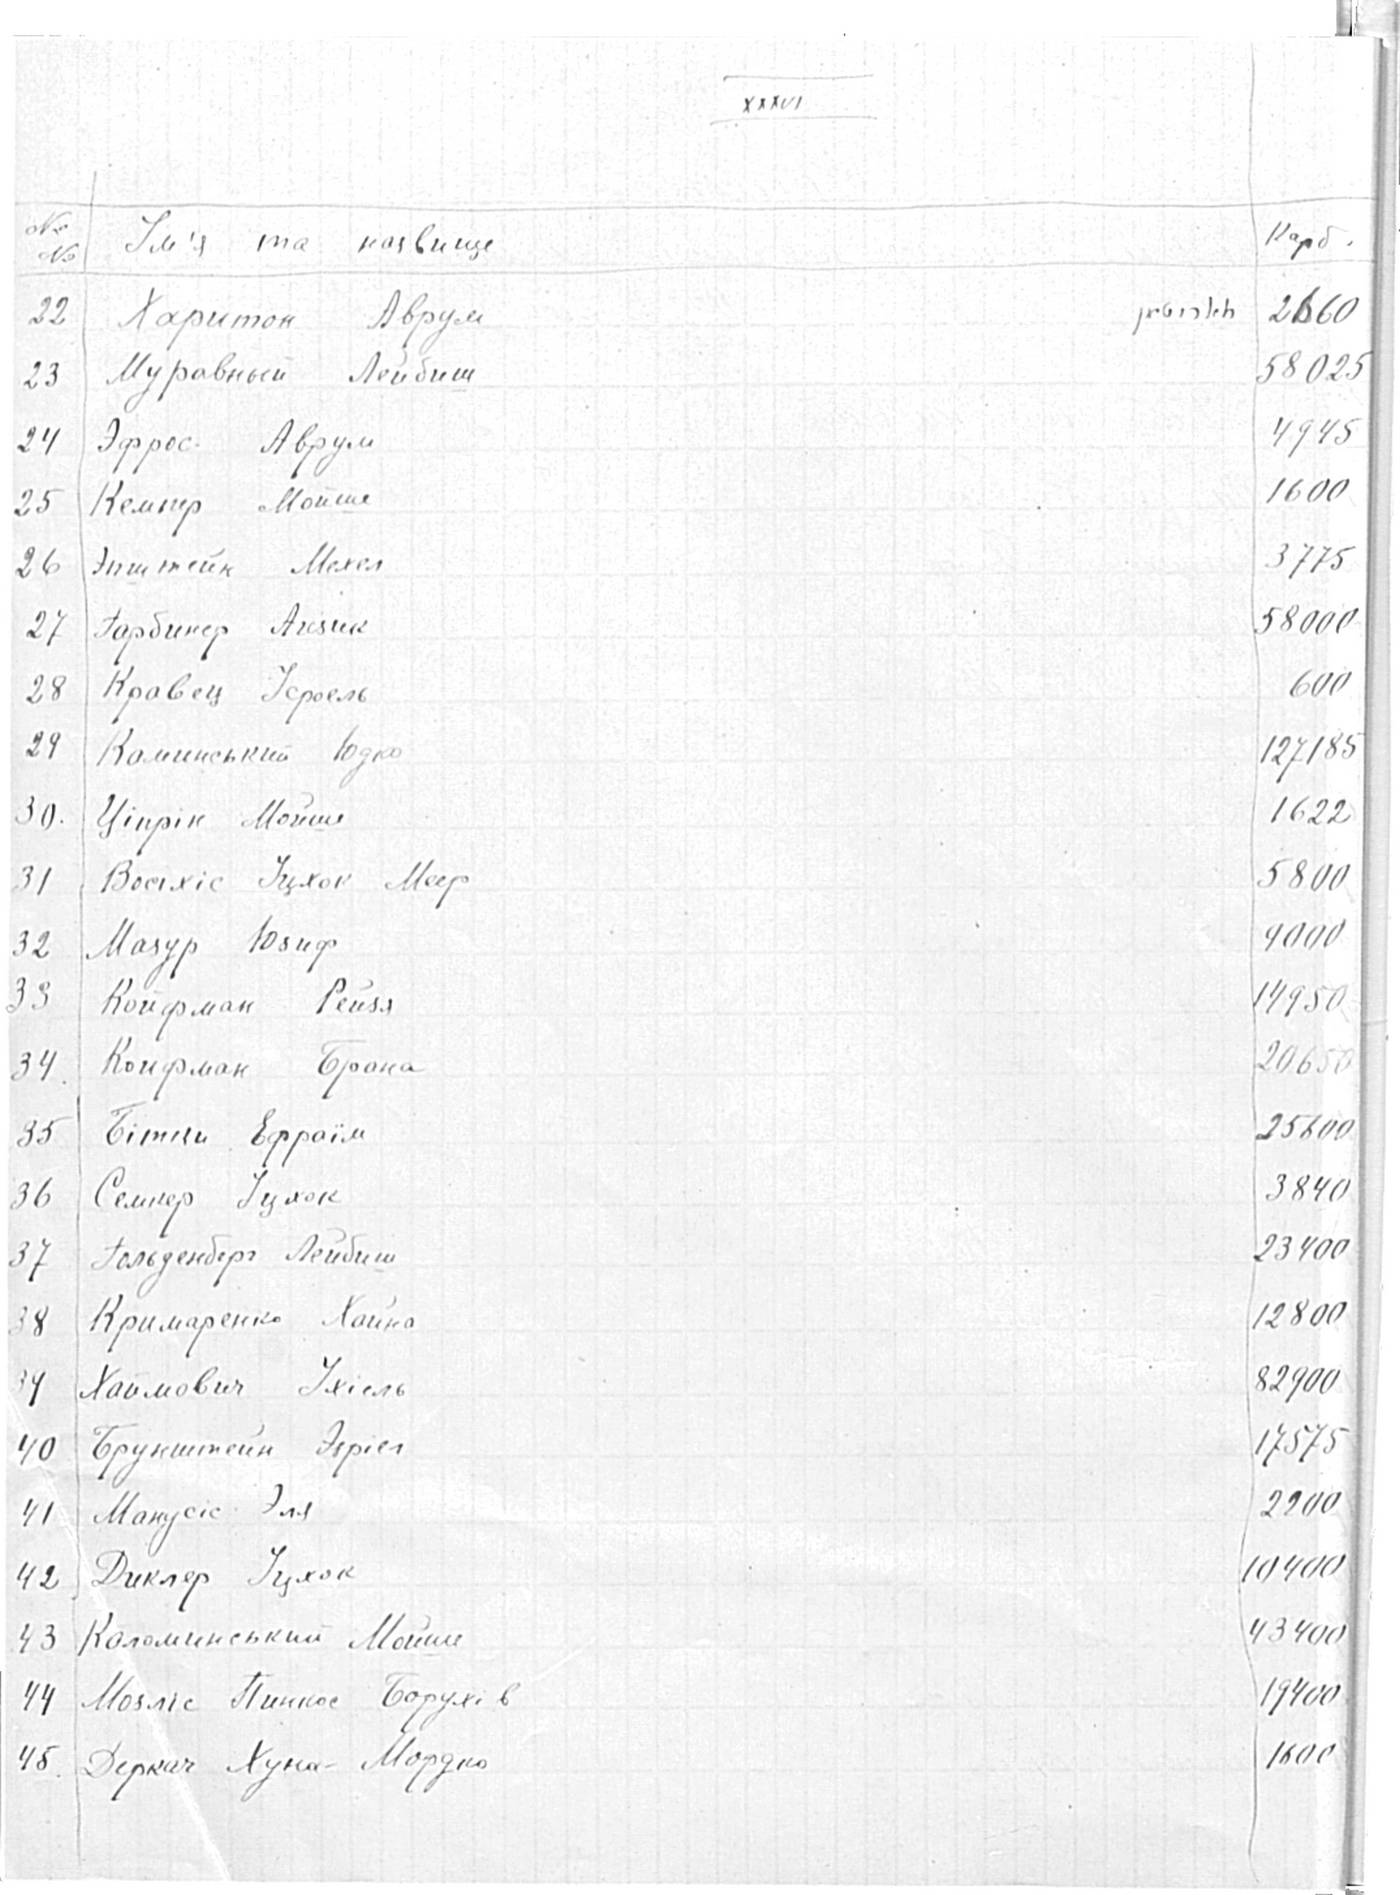 XXXVI
№ № Ім'я та назвище Карб.
22 Харитон Аврум 2660
23 Муравный Лейбиш 58025
24 Эфрос Аврум 4945
25 Кемпер Мойше 1600
26 Эпштейн Мехел 3775
27 Гарбинер Айзик 58000
28 Кравец Ісроель 600
29 Каминський Юдко 127185
30. Ціпрін Мойше 1622
31 Іцхок Меер 5800
32 Мазур Юзиф 9000
33 Койфман Рейзя 14950
34. Койфман Брана 20650
35 Ефраїм 25600
36 Семпер Іцхок 3840
37 Гольденберг Лейбиш 23400
38 Кримаренко Хайна 12800
39 Хаймович Іхіель 82900
40 Брунштейн Эзріел 17575
41 Манусіс Эля 2200
42 Диклер Іцхок 10400
43 Каломинський Мойше 43400
44 Мазліс Пинкос Борухів 19400
45. Деркач Хуна-Мордко 1600